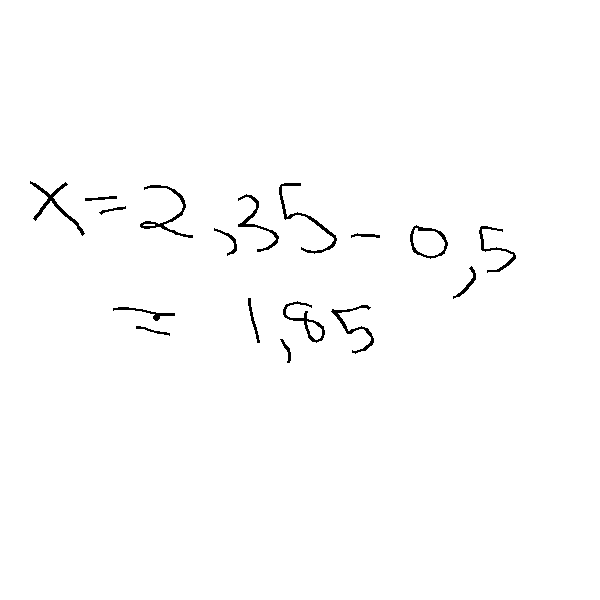 x = 2,35 - 0,5
= 1,85